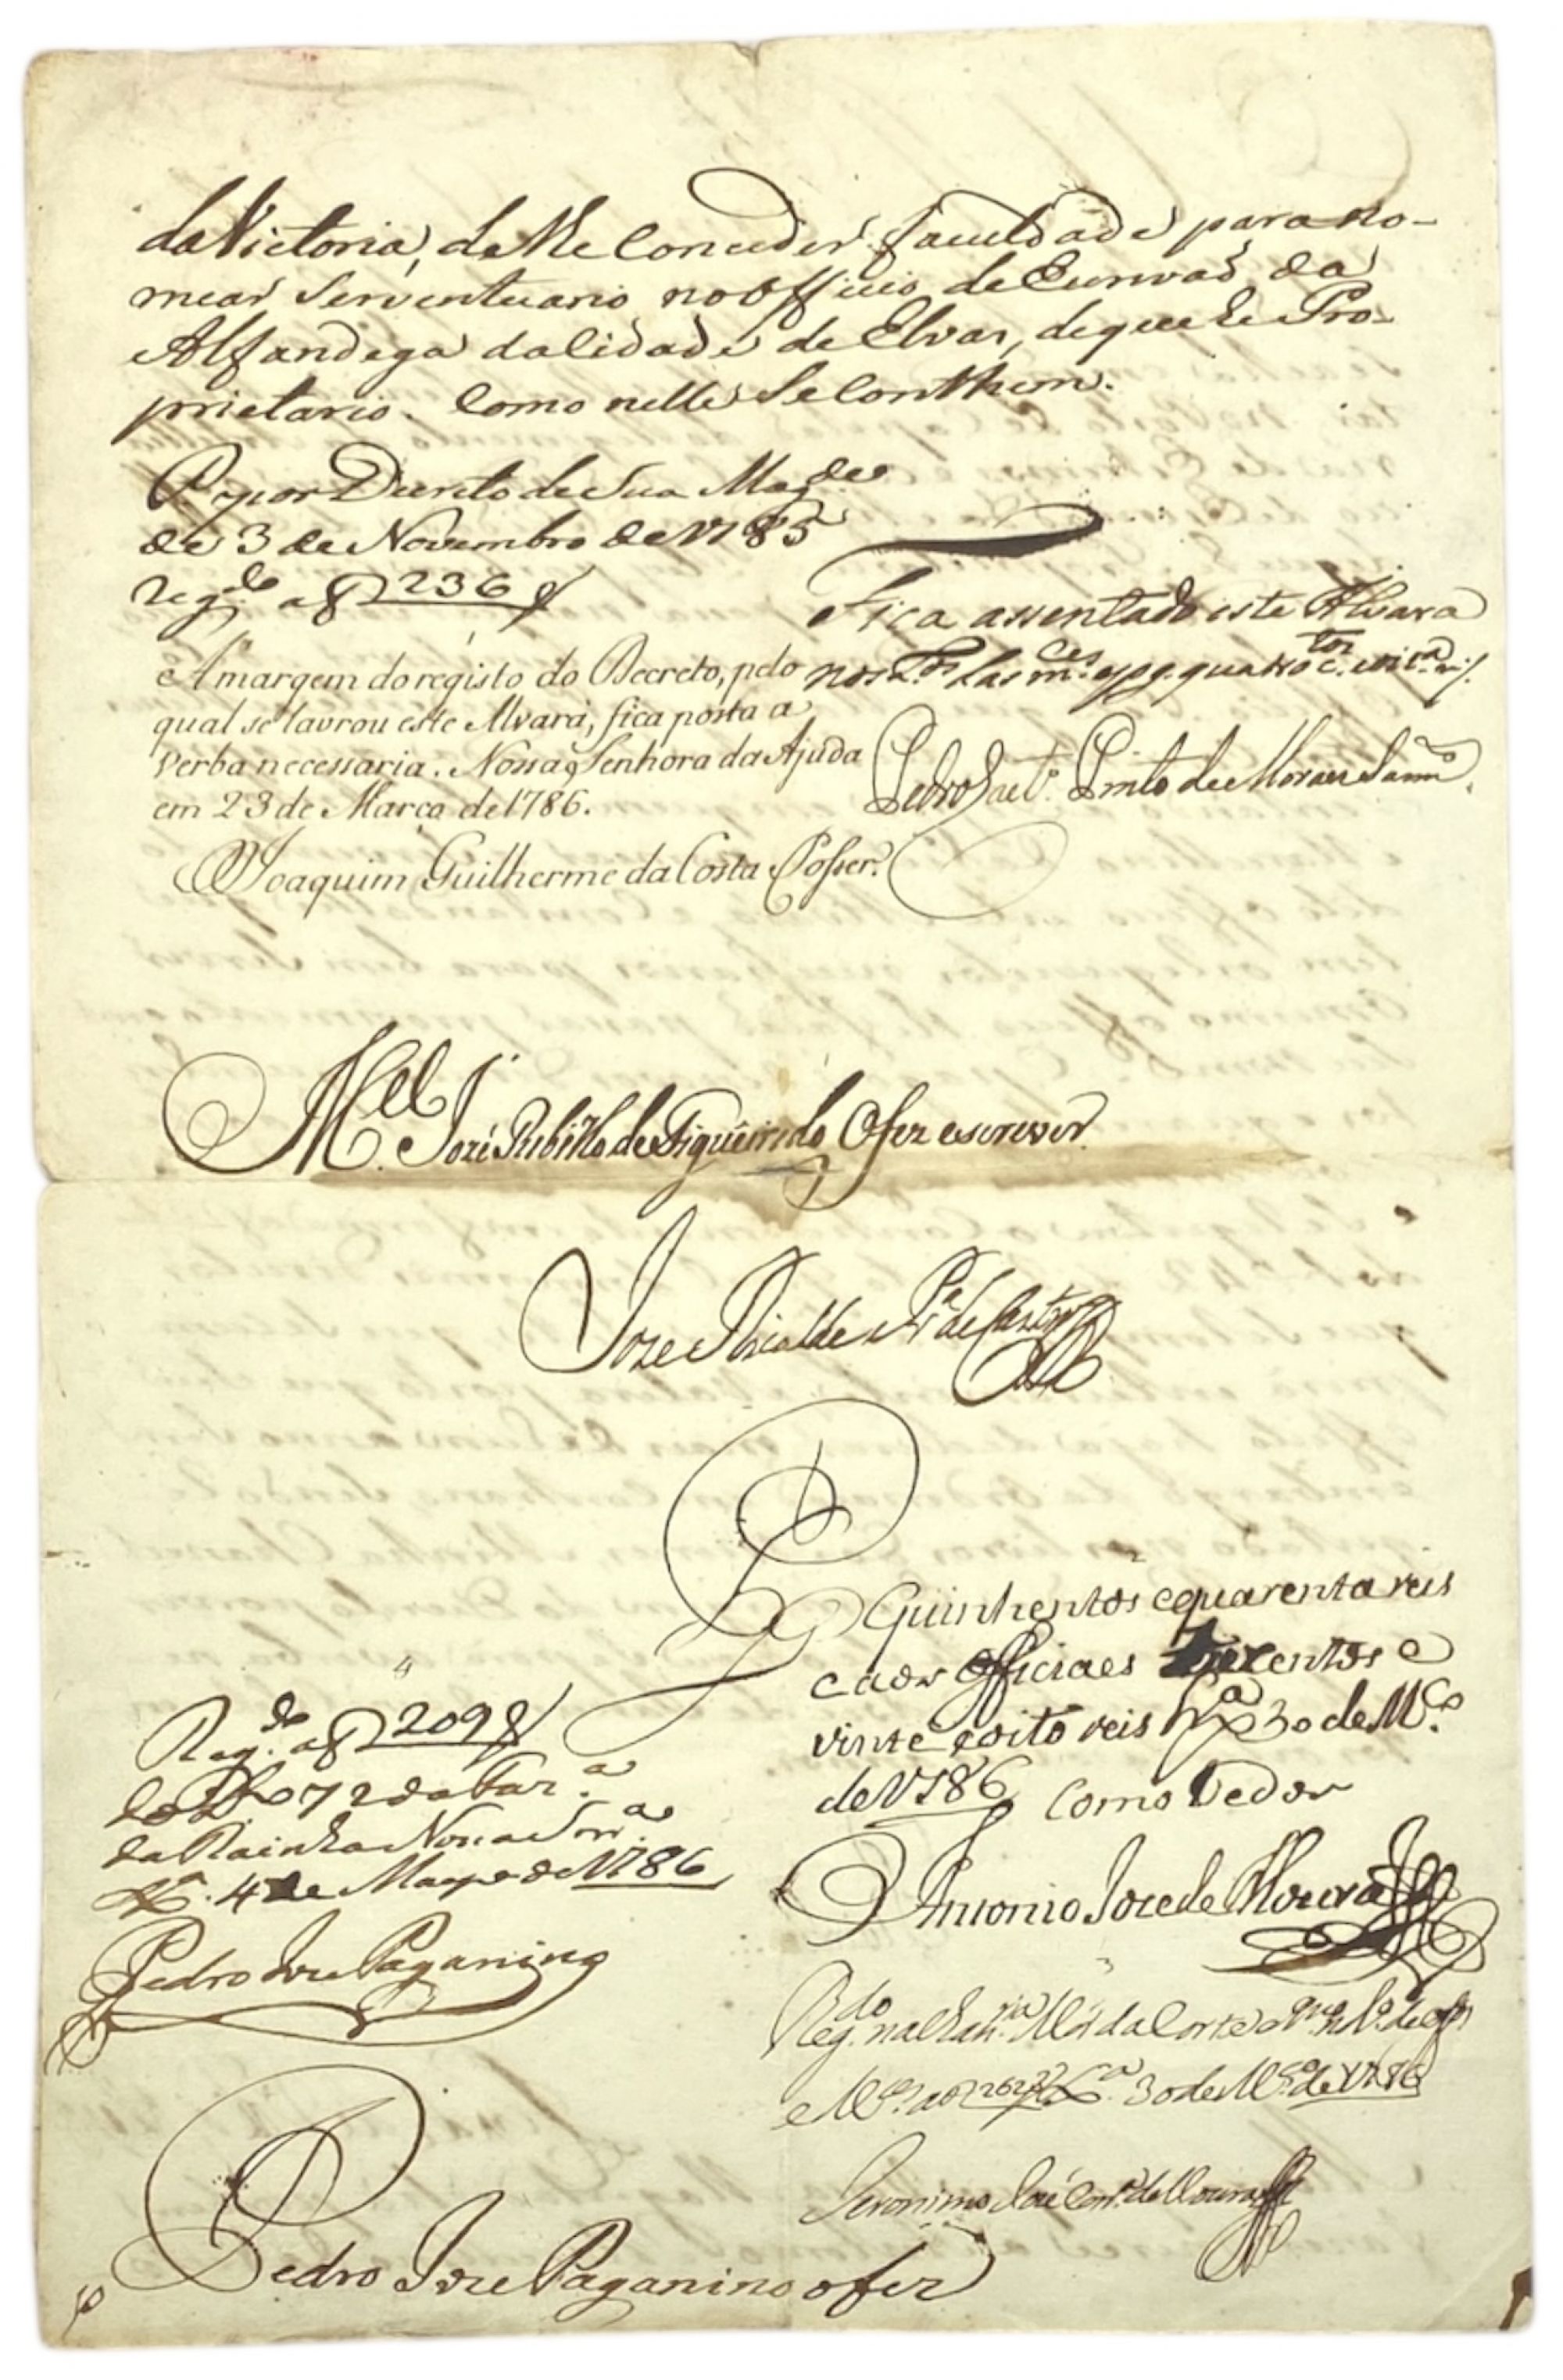 da Victoria, de lhe Conceder faculdade para no-
mear Serventuario no Officio de Escrivaõ da
Alfandega da Cidade de Elvas, de que he Pro-
prietario. Como nelle Se Conthem.
P. por Decreto de Sua Mag.de
de 3 de Novembro de 1785
reg.do a f 236
Fica assentado este Alvara
nos L.os das m.ces e pg. quatro c.tos
A margem do registo do Decreto, pelo
qual se lavrou este Alvará, fica posta a
verba necessaria. Nossa Senhora da Ajuda
em 23 de Março de 1786.
Pedro Caet.o Pinto de Moraes Sarm.to
Joaquim Guilherme da Costa Posser.
M.el José Rib.ro de Figueiredo O fez escrever
Joze Ricalde P.ra de Castro
Quinhentos e quarenta reis
e aos officiaes trezentos e
vinte e oito reis Lx.a 30 de M.ço
de 1786 Como Vedor
Antonio Joze de Moura
Reg.do a f 209
do da Faz.a
da Rainha Nossa Snr.a
Lx.a 4 de Mayo de 1786
Pedro Joze Paganino
Reg.do na Chan.ria Mór da Corte e Rn.o no L.o de Off.os
e M.ces a f 262 Lx.a 30 de M.ço de 1786
Jeronimo José Corr.a de Moura
Pedro Joze Paganino o fez